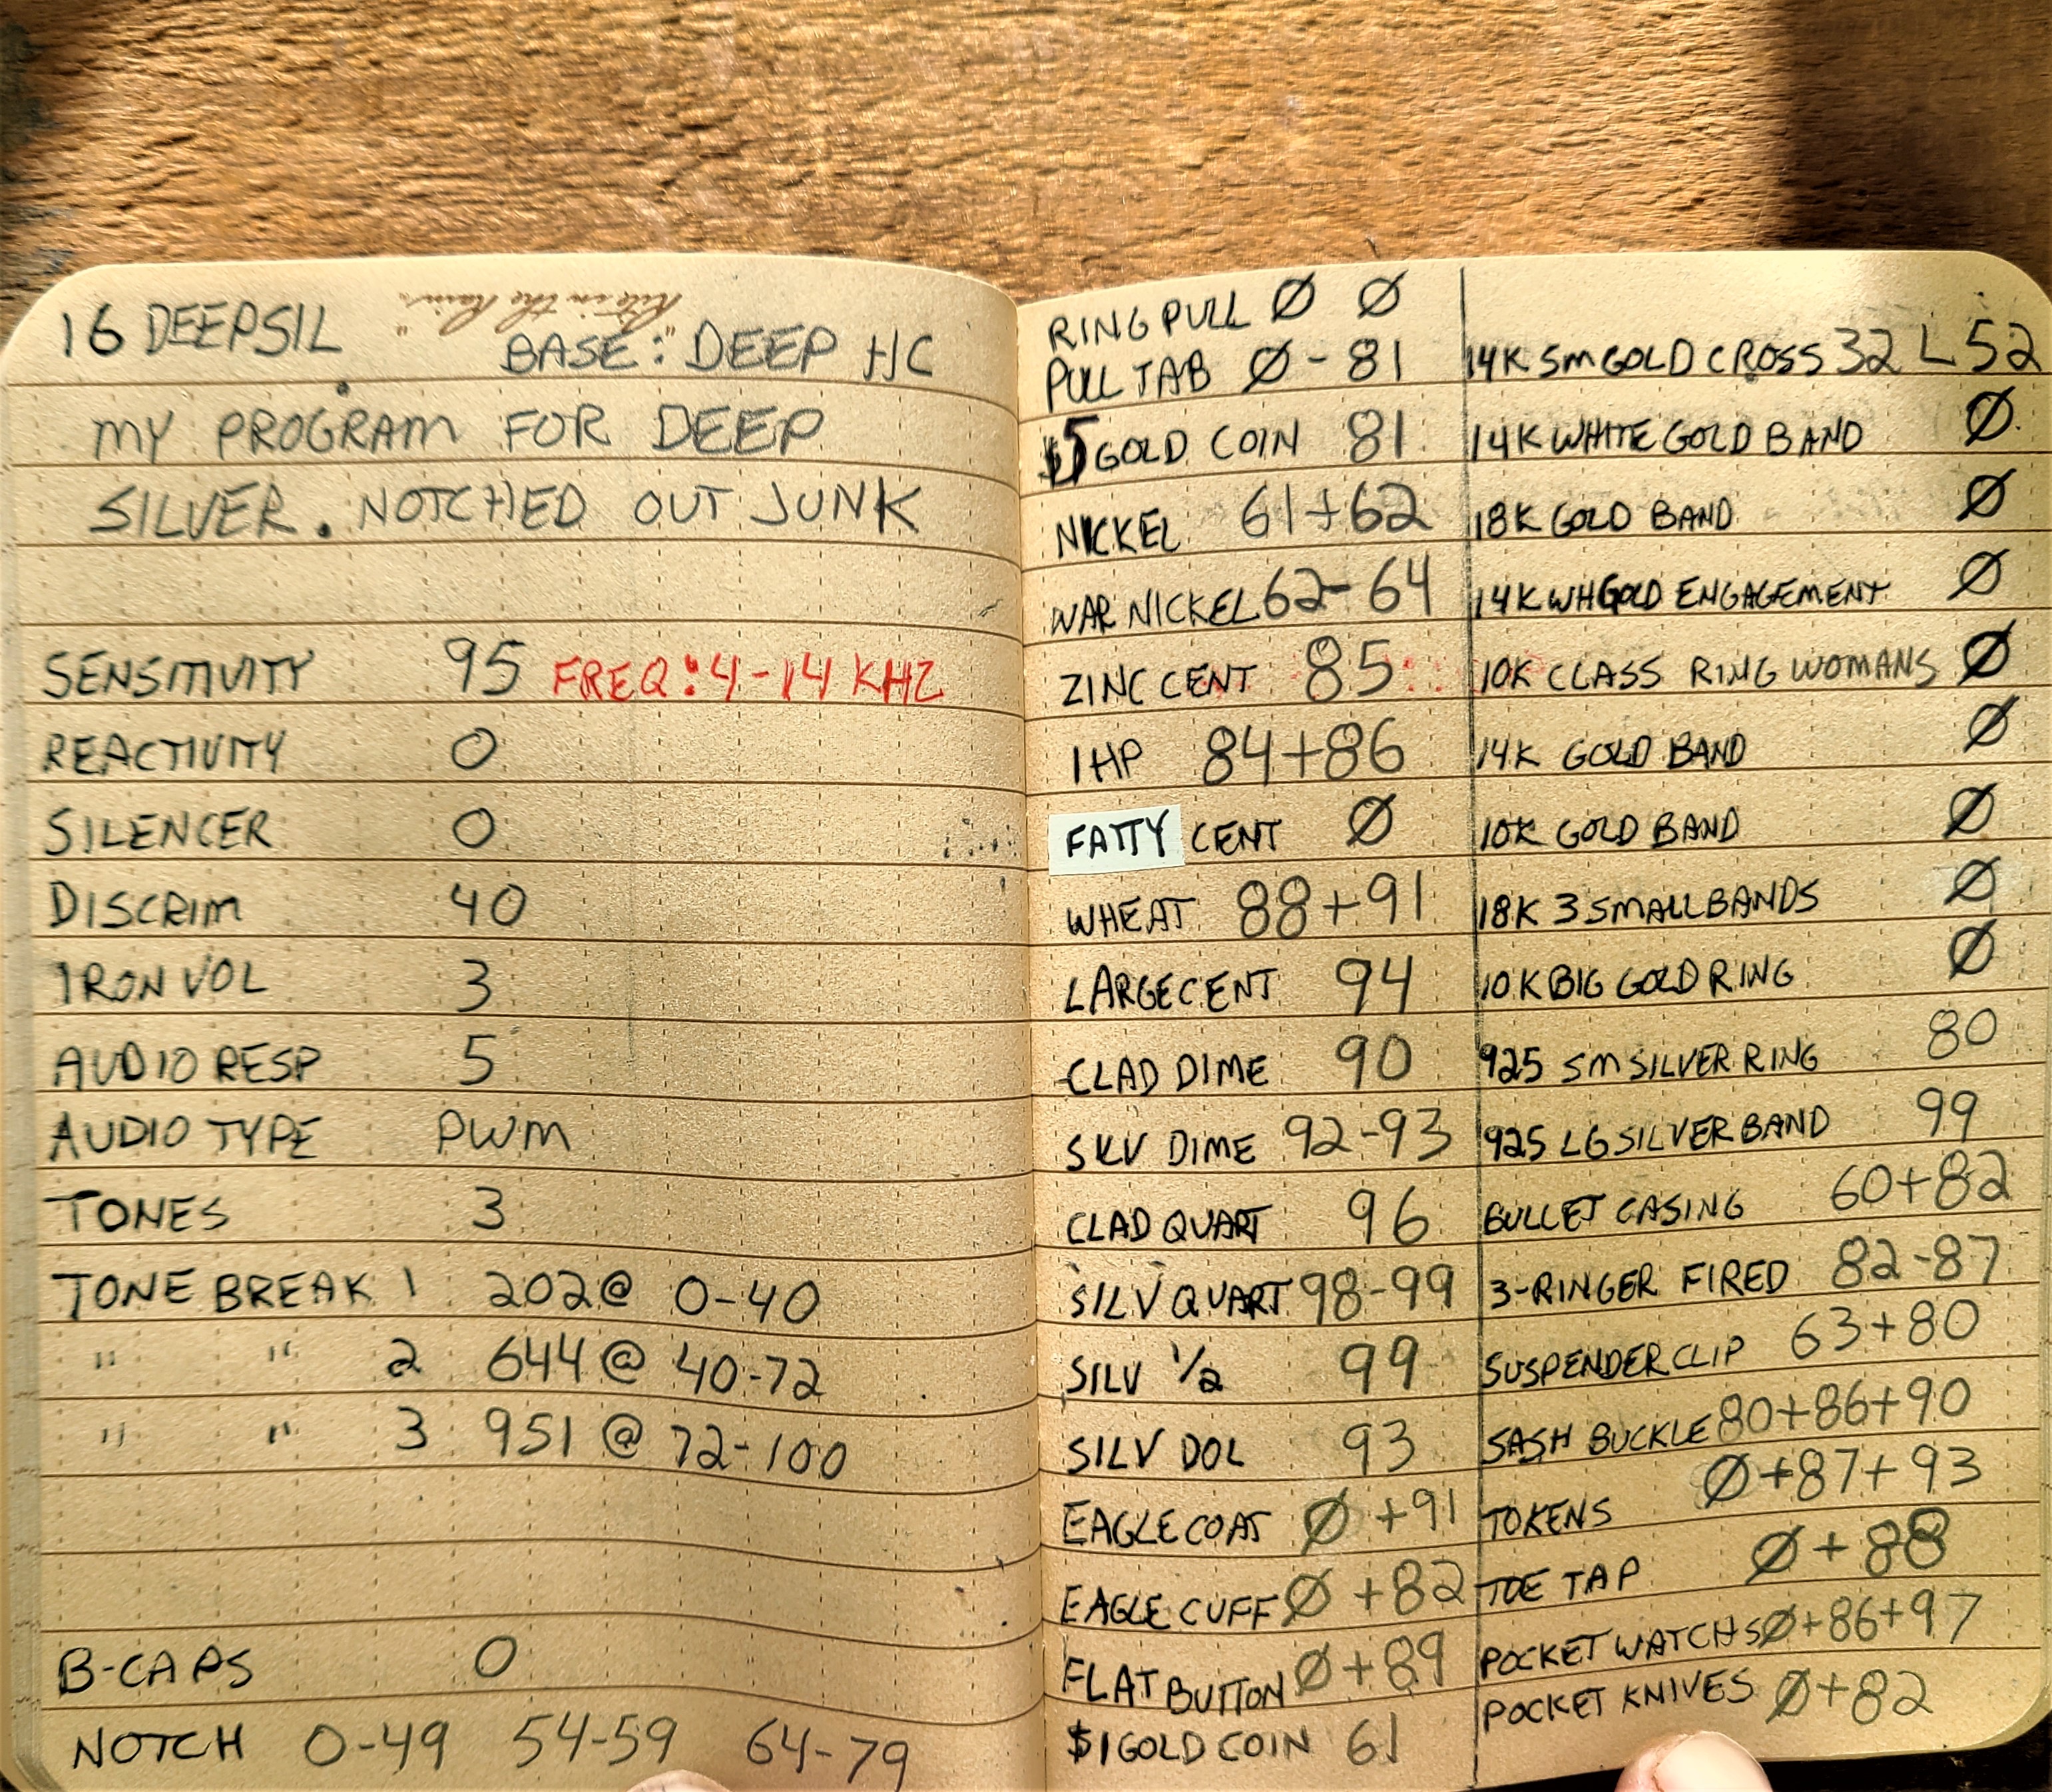 "Rite in the Rain"
16 DEEPSIL
BASE: DEEP HC
MY PROGRAM FOR DEEP
SILVER. NOTCHED OUT JUNK
SENSITIVITY 95 FREQ: 4-14 KHZ
REACTIVITY 0
SILENCER 0
DISCRIM 40
IRON VOL 3
AUDIO RESP 5
AUDIO TYPE PWM
TONES 3
TONE BREAK 1 202 @ 0-40
" " 2 644 @ 40-72
" " 3 951 @ 72-100
B-CAPS 0
NOTCH 0-49 54-59 64-79
RING PULL Ø Ø
PULL TAB Ø - 81
$5 GOLD COIN 81
NICKEL 61+62
WAR NICKEL 62-64
ZINC CENT 85
IHP 84+86
FATTY CENT Ø
WHEAT 88+91
LARGE CENT 94
CLAD DIME 90
SILV DIME 92-93
CLAD QUART 96
SILV QUART 98-99
SILV 1/2 99
SILV DOL 93
EAGLE COAT Ø +91
EAGLE CUFF Ø +82
FLAT BUTTON Ø+89
$1 GOLD COIN 61
14K SM GOLD CROSS 32 L 52
14K WHITE GOLD BAND Ø
18K GOLD BAND Ø
14K WH GOLD ENGAGEMENT Ø
10K CLASS RING WOMANS Ø
14K GOLD BAND Ø
10K GOLD BAND Ø
18K 3 SMALL BANDS Ø
10K BIG GOLD RING Ø
925 SM SILVER RING 80
925 LG SILVER BAND 99
BULLET CASING 60+82
3-RINGER FIRED 82-87
SUSPENDER CLIP 63+80
SASH BUCKLE 80+86+90
TOKENS Ø+87+93
TOE TAP Ø+88
POCKET WATCHS Ø+86+97
POCKET KNIVES Ø+82